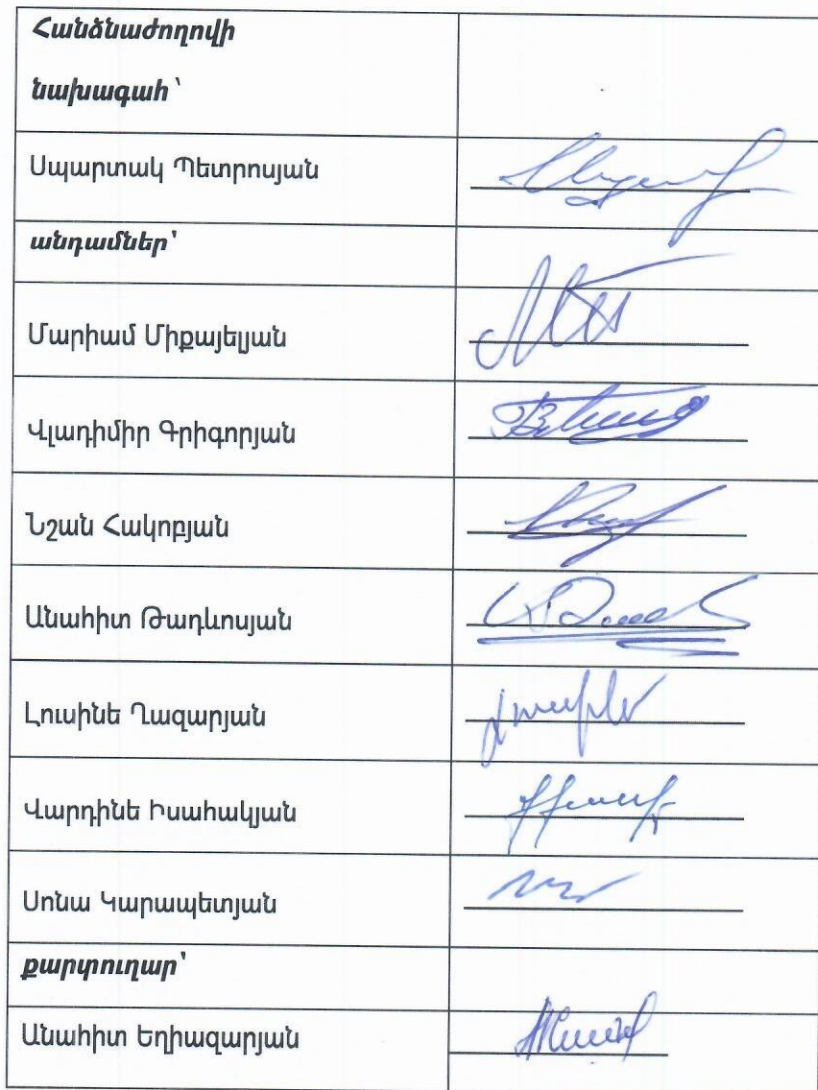 Հանձնաժողովի
նախագահ՝
Սպարտակ Պետրոսյան
անդամներ՝
Մարիամ Միքայելյան
Վլադիմիր Գրիգորյան
Նշան Հակոբյան
Անահիտ Թադևոսյան
Լուսինե Ղազարյան
Վարդինե Իսահակյան
Սոնա Կարապետյան
քարտուղար՝
Անահիտ Եղիազարյան